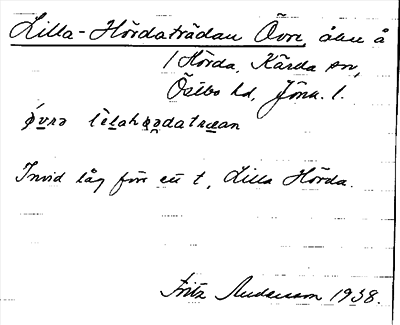 Lilla-Hördaträdan Övre, åker å
/ Hörda, Kärda sn,
Östbo hd, Jönk. l.
øvrə lìlahørdatræan
Invid låg förr ett t, Lilla Hörda.
Fritz Andersson 1938.